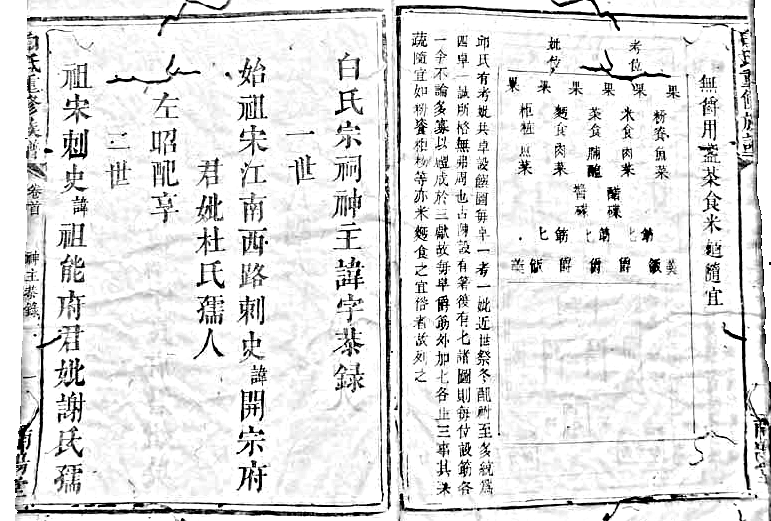 無爵用盞茶食米麵隨宜
考位
妣位
果 果 果 果 果 果
粉餈魚菜
米食肉菜
茶食脯醢
麵食肉菜
粔粔魚菜
醋碟
醬碟
匕筯 匕筯 匕筯
羹飯 爵 爵 爵 飯羹
邱氏有考妣共卓設饌圖每卓一考一妣近世祭冬配祔至多統爲
四卓一誠所格無弗周也古陳設有箸復有匕諸圖則每位設筯各
一今不論多寡以爐成於三獻故每卓爵筯外加匕各止三事其米
蔬隨宜如粉餈粔粉等亦米麵食之宜俗者故列之
白氏宗祠神主諱字恭録
一世
始祖宋江南西路刺史諱開宗府
君妣杜氏孺人
左昭配享
二世
祖宋刺史諱祖能府君妣謝氏孺
白氏重修族譜
卷首
神主恭録
南陽堂
白氏重修族譜